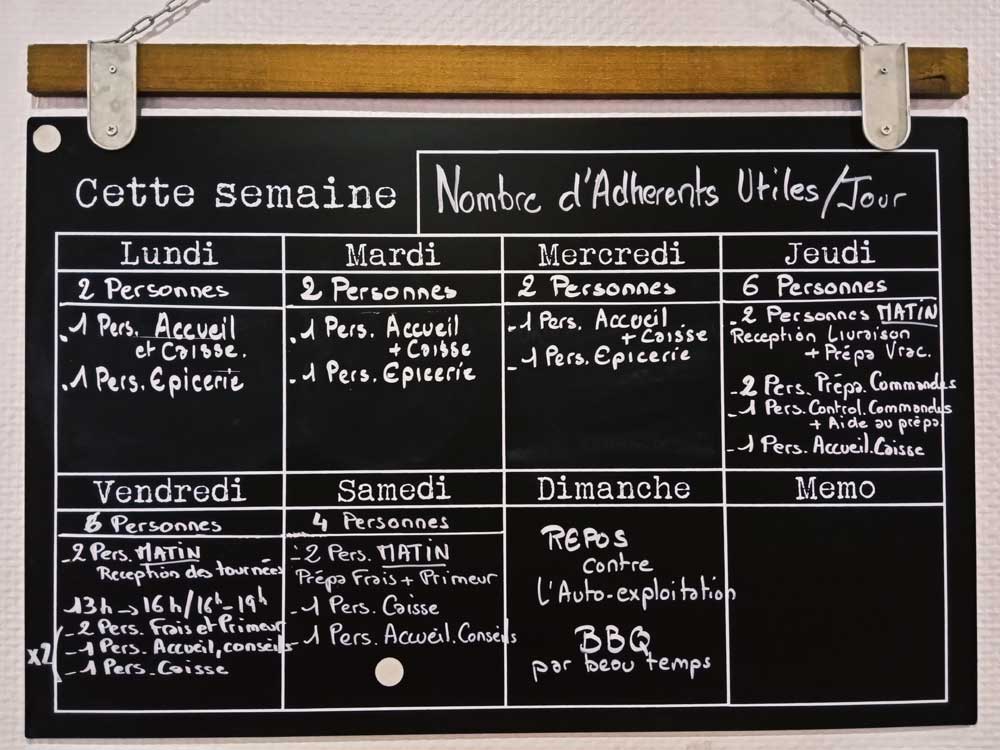 Cette semaine
Nombre d'Adherents Utiles/Jour
Lundi
2 Personnes
.1 Pers. Accueil
et Caisse.
.1 Pers. Epicerie
Mardi
2 Personnes
.1 Pers. Accueil
+ Caisse
.1 Pers. Epicerie
Mercredi
2 Personnes
-1 Pers. Accueil
+ Caisse
-1 Pers. Epicerie
Jeudi
6 Personnes
-2 Personnes MATIN
Reception Livraison
+ Prépa Vrac.
-2 Pers. Prépa. Commandes
-1 Pers. Control. Commandes
+ Aide au prépa.
-1 Pers. Accueil. Caisse
Vendredi
Personnes
-2 Pers. MATIN
Reception des tournées
13h → 16h/16h-19h
x2
-2 Pers. Frais et Primeur
-1 Pers. Accueil, conseils
-1 Pers. Caisse
Samedi
4 Personnes
-2 Pers. MATIN
Prépa Frais + Primeur
-1 Pers. Caisse
-1 Pers. Accueil. Conseils
Dimanche
REPOS
contre
l'Auto-exploitation
BBQ
par beau temps
Memo